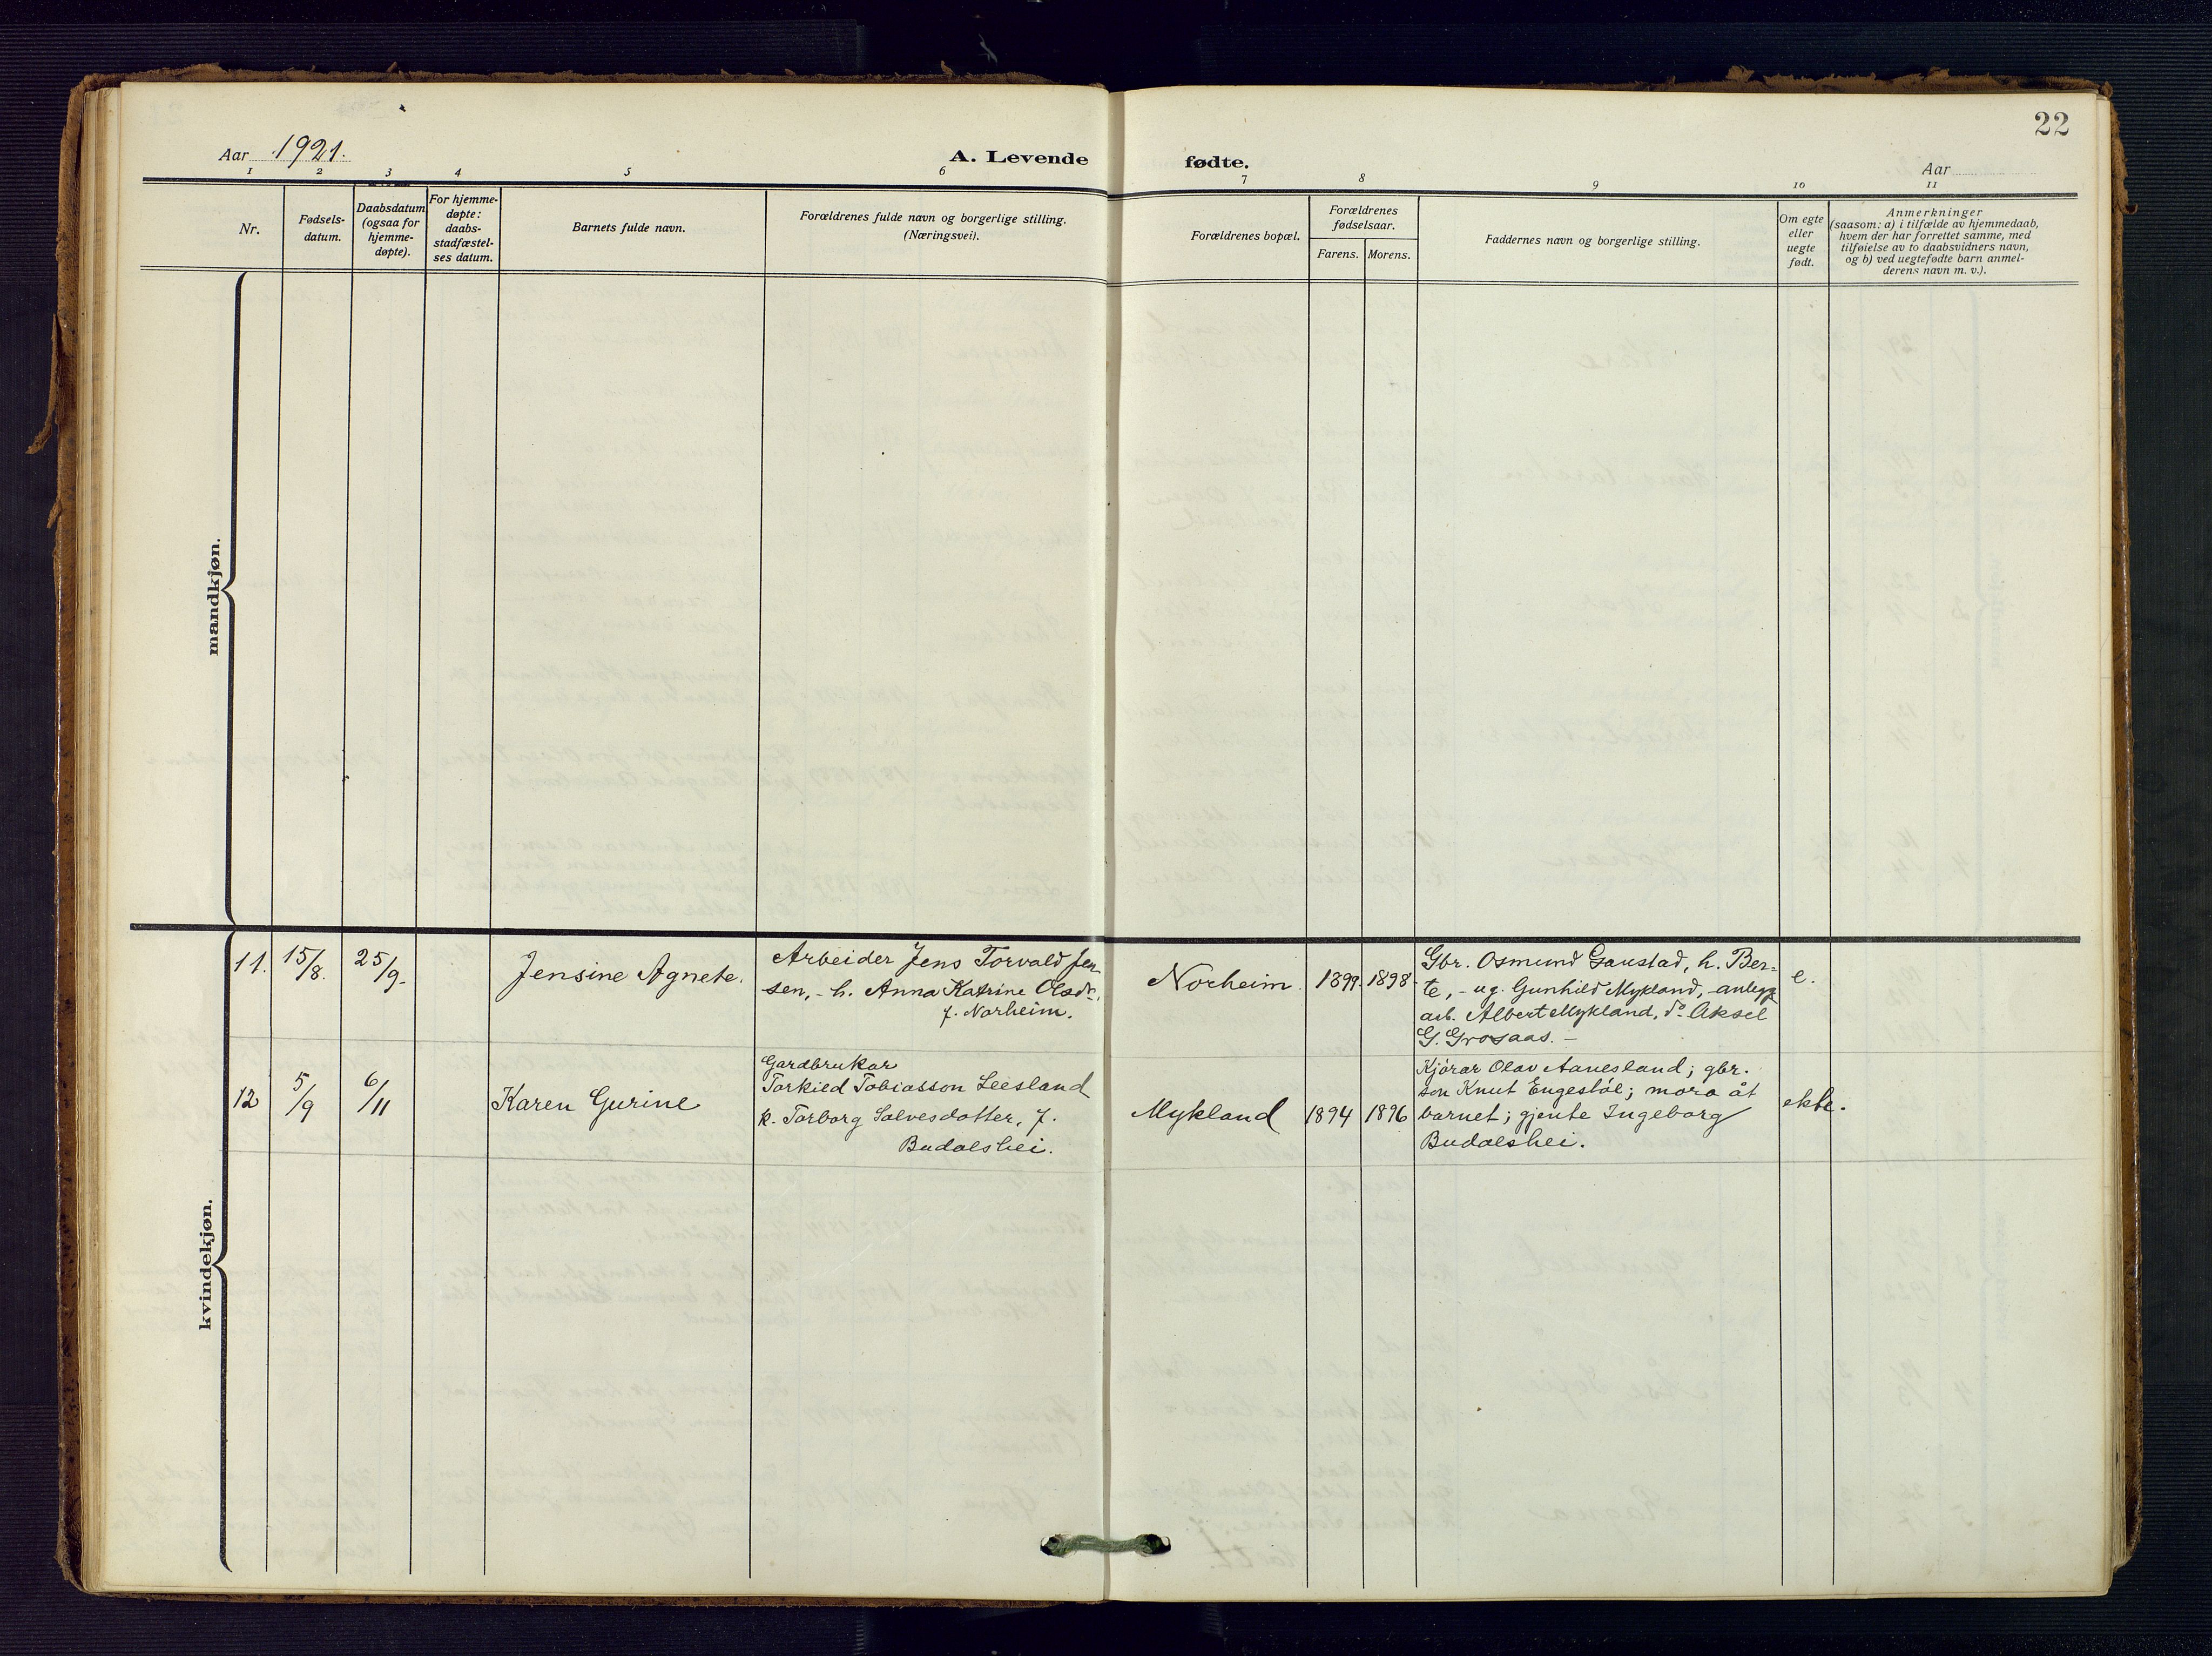 22
Aar 1921.
A. Levende fødte.
Aar
1 2 3 4 5 6 7 8 9 10 11
Nr.
Fødsels-
datum.
Daabsdatum
(ogsaa for
hjemme-
døpte).
For hjemme-
døpte:
daabs-
stadfæstel-
ses datum.
Barnets fulde navn.
Forældrenes fulde navn og borgerlige stilling.
(Næringsvei).
Forældrenes bopæl.
Forældrenes
fødselsaar.
Farens. Morens.
Faddernes navn og borgerlige stilling.
Om egte
eller
uegte
født.
Anmerkninger
(saasom: a) i tilfælde av hjemmedaab,
hvem der har forrettet samme, med
tilføielse av to daabsvidners navn,
og b) ved uegtefødte barn anmel-
derens navn m. v.).
mandkjøn.
kvindekjøn.
11. 15/8. 25/9.
Jensine Agnete.
Arbeider Jens Torvald Jen-
sen, - h. Anna Katrine Olsdr.
f. Norheim.
Norheim. 1899. 1898.
Gbr. Osmund Gaustad, h. Ber=
te, - ug. Gunhild Mykland, - anlegg
arb. Albert Mykland, do Aksel
G. Grosaas. -
e.
12 5/9 6/11
Karen Gurine
Gardbrukar
Torkild Tobiasson Leesland
k. Torborg Salvesdotter, f.
Budalshei.
Mykland 1894 1896
Kjørar Olav Aanesland; gbr.
son Knut Engestøl; mora åt
barnet; gjente Ingeborg
Budalshei.
ekte.